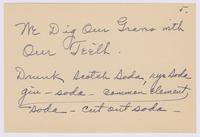 5.
We Dig Our Graves with
Our Teeth.
Drunk Scotch Soda, rye Soda
gin - soda - common element
Soda - cut out soda -